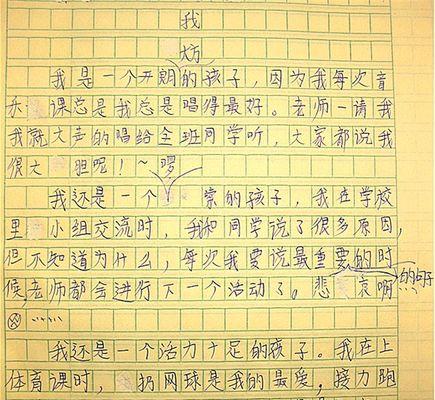 我
大方
我是一个开朗的孩子，因为我每次音
乐课总是我总是唱得最好。老师一请我
我就大声的唱给全班同学听，大家都说我
很大胆呢！~
啰
我还是一个索的孩子，我在学校
里小组交流时，我和同学说了很多原因，
但不知道为什么，每次我要说最重要的时
候，老师都会进行下一个活动了。悲哀啊
的句子
……
我还是一个活力十足的孩子。我在上
体育课时，扔网球是我的最爱，接力跑